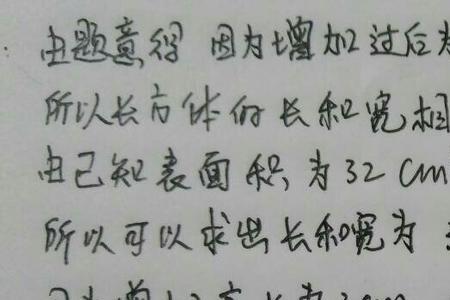 由题意得 因为增加过后
所以长方体的长和宽相
由已知表面积为32cm
所以可以求出长和宽为